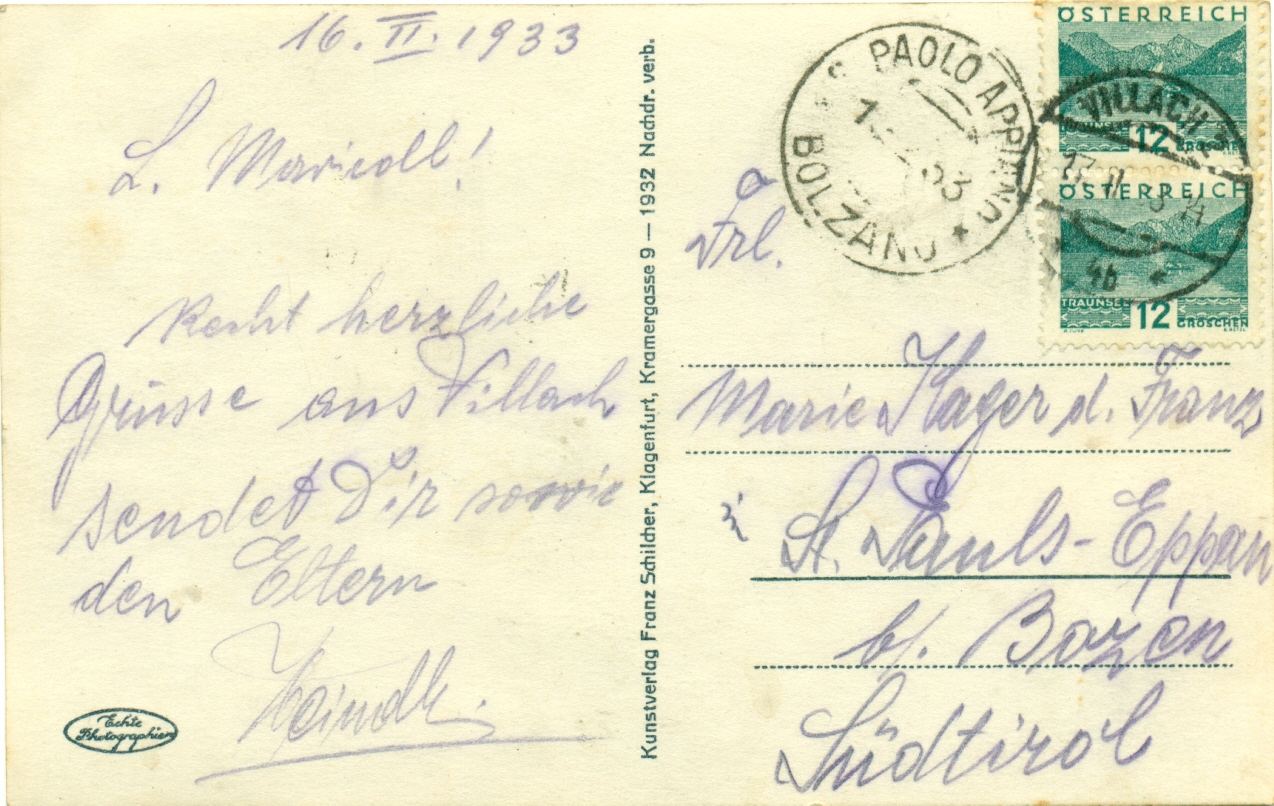 16. II. 1933
L. Mariedl!
Recht herzliche
Grüsse aus Villach
sendet Dir sowie
den Eltern
Heindl.
Echte
Photographien
Kunstverlag Franz Schilcher, Klagenfurt, Kramergasse 9 — 1932 Nachdr. verb.
S. PAOLO APPIANO
BOLZANO
ÖSTERREICH
12
GROSCHEN
VILLACH
ÖSTERREICH
TRAUNSEE
12
GROSCHEN
4b
Frl.
Marie Hager d. Franz
St. Pauls-Eppan
b/. Bozen
Südtirol